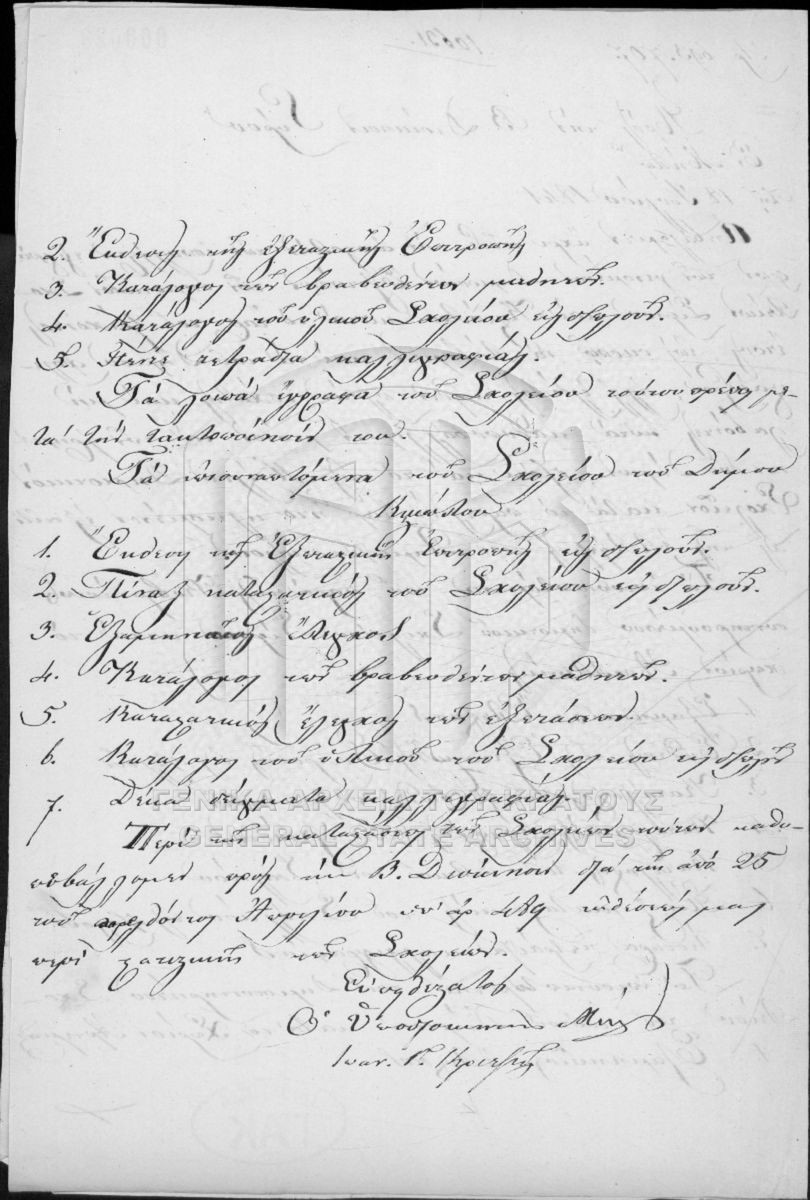 2. Ἔκθεσις τῆς ἐξεταστικῆς Ἐπιτροπῆς
3. Κατάλογος τῶν βραβευθέντων μαθητῶν.
4. Κατάλογος τοῦ ὑλικοῦ Σχολείου εἰς διπλοῦν.
5. Πέντε τετράδια καλλιγραφίας.
Τὰ λοιπὰ ἔγγραφα τοῦ Σχολείου τούτου με-
τὰ τὴν τακτοποίησίν του.
Τὰ ἐπισυναπτόμενα τοῦ Σχολείου τοῦ Δήμου
Κιμώλου
1. Ἔκθεσις τῆς Ἐξεταστικῆς Ἐπιτροπῆς εἰς διπλοῦν.
2. Πίναξ καταστατικὸς τοῦ Σχολείου εἰς διπλοῦν.
3. Ἑξαμηνιαῖος Ἔλεγχος
4. Κατάλογος τῶν βραβευθέντων μαθητῶν.
5. Καταστατικὸς ἔλεγχος τῶν ἐξετάσεων.
6. Κατάλογος τοῦ ὑλικοῦ τοῦ Σχολείου εἰς διπλοῦν
7. Δέκα δείγματα καλλιγραφίας.
ΓΕΝΙΚΑ ΑΡΧΕΙΑ ΤΟΥ ΚΡΑΤΟΥΣ
GENERAL STATE ARCHIVES
Περὶ τῆς καταστάσεως τῶν Σχολείων τούτων καθυ-
ποβάλλομεν πρὸς τὴν Β. Διοίκησιν διὰ τῆς ἀπὸ 25
τοῦ παρελθόντος Ἀπριλίου ὑπ' ἀρ 489 ἐκθέσεώς μας
περὶ στατικῆς τῶν Σχολείων.
Εὐπειθέστατος
Ὁ Ὑποδιοικητὴς Μήλου
Ιωαν. Γ.